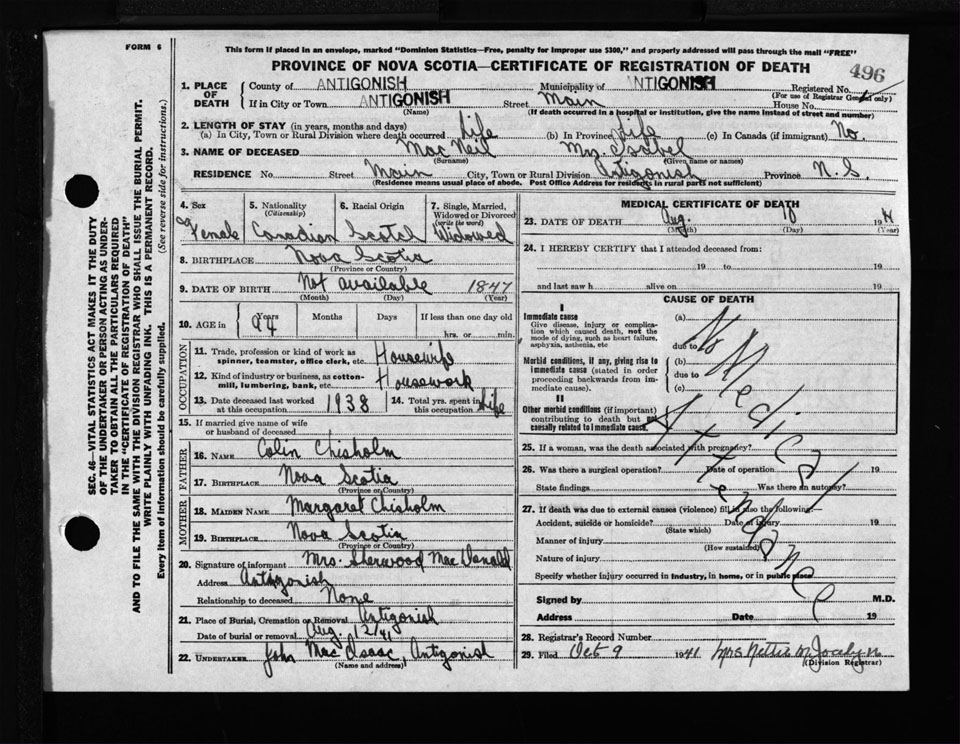 FORM 6
This form if placed in an envelope, marked "Dominion Statistics—Free, penalty for improper use $300," and properly addressed will pass through the mail "FREE"
PROVINCE OF NOVA SCOTIA—CERTIFICATE OF REGISTRATION OF DEATH
496
1. PLACE OF DEATH County of ANTIGONISH Municipality of ANTIGONISH Registered No.
(For use of Registrar General only)
If in City or Town ANTIGONISH Street Main House No.
(Name) (If death occurred in a hospital or institution, give the name instead of street and number)
2. LENGTH OF STAY (in years, months and days)
(a) In City, Town or Rural Division where death occurred Life (b) In Province Life (c) In Canada (if immigrant) No.
3. NAME OF DECEASED Mac Neil Mrs. Isabel
(Surname) (Given name or names)
RESIDENCE No. Street Main City, Town or Rural Division Antigonish Province N.S.
(Residence means usual place of abode. Post Office Address for residents in rural parts not sufficient)
4. Sex Female
5. Nationality (Citizenship) Canadian
6. Racial Origin Scotch
7. Single, Married, Widowed or Divorced (write the word) Widowed
8. BIRTHPLACE Nova Scotia
(Province or Country)
9. DATE OF BIRTH Not available 1847
(Month) (Day) (Year)
10. AGE in Years 94 Months Days If less than one day old
hrs. or min.
OCCUPATION
11. Trade, profession or kind of work as spinner, teamster, office clerk, etc. Housewife
12. Kind of industry or business, as cotton-mill, lumbering, bank, etc. Housework
13. Date deceased last worked at this occupation 1938
14. Total yrs. spent in this occupation Life
15. If married give name of wife or husband of deceased
FATHER
16. NAME Colin Chisholm
17. BIRTHPLACE Nova Scotia
(Province or Country)
MOTHER
18. MAIDEN NAME Margaret Chisholm
19. BIRTHPLACE Nova Scotia
(Province or Country)
20. Signature of informant Mrs. Sherwood Mac Donald
Address Antigonish
Relationship to deceased None
21. Place of Burial, Cremation or Removal Antigonish
Date of burial or removal Aug. 12/41
22. UNDERTAKER John Mac Isaac, Antigonish
(Name and address)
MEDICAL CERTIFICATE OF DEATH
23. DATE OF DEATH Aug. 10 194
(Month) (Day) (Year)
24. I HEREBY CERTIFY that I attended deceased from:
19 to 19
and last saw h alive on 19
CAUSE OF DEATH
I
Immediate cause
Give disease, injury or complication which caused death, not the mode of dying, such as heart failure, asphyxia, asthenia, etc
(a)
due to
Morbid conditions, if any, giving rise to immediate cause (stated in order proceeding backwards from immediate cause).
(b)
due to
(c)
II
Other morbid conditions (if important) contributing to death but not causally related to immediate cause.
No Medical Attendance
25. If a woman, was the death associated with pregnancy?
26. Was there a surgical operation? Date of operation 19
State findings Was there an autopsy?
27. If death was due to external causes (violence) fill in also the following:—
Accident, suicide or homicide? Date of injury 19
(State which)
Manner of injury
(How sustained)
Nature of injury
Specify whether injury occurred in industry, in home, or in public place
Signed by M.D.
Address Date 19
28. Registrar's Record Number
29. Filed Oct 9 1941 Mrs Nettie M. Jocelyn
(Division Registrar)
SEC. 46—VITAL STATISTICS ACT MAKES IT THE DUTY
OF THE UNDERTAKER OR PERSON ACTING AS UNDER-
TAKER TO OBTAIN ALL THE PARTICULARS REQUIRED
IN THE "CERTIFICATE OF REGISTRATION OF DEATH"
AND TO FILE THE SAME WITH THE DIVISION REGISTRAR WHO SHALL ISSUE THE BURIAL PERMIT.
WRITE PLAINLY WITH UNFADING INK. THIS IS A PERMANENT RECORD.
Every item of information should be carefully supplied. (See reverse side for instructions.)